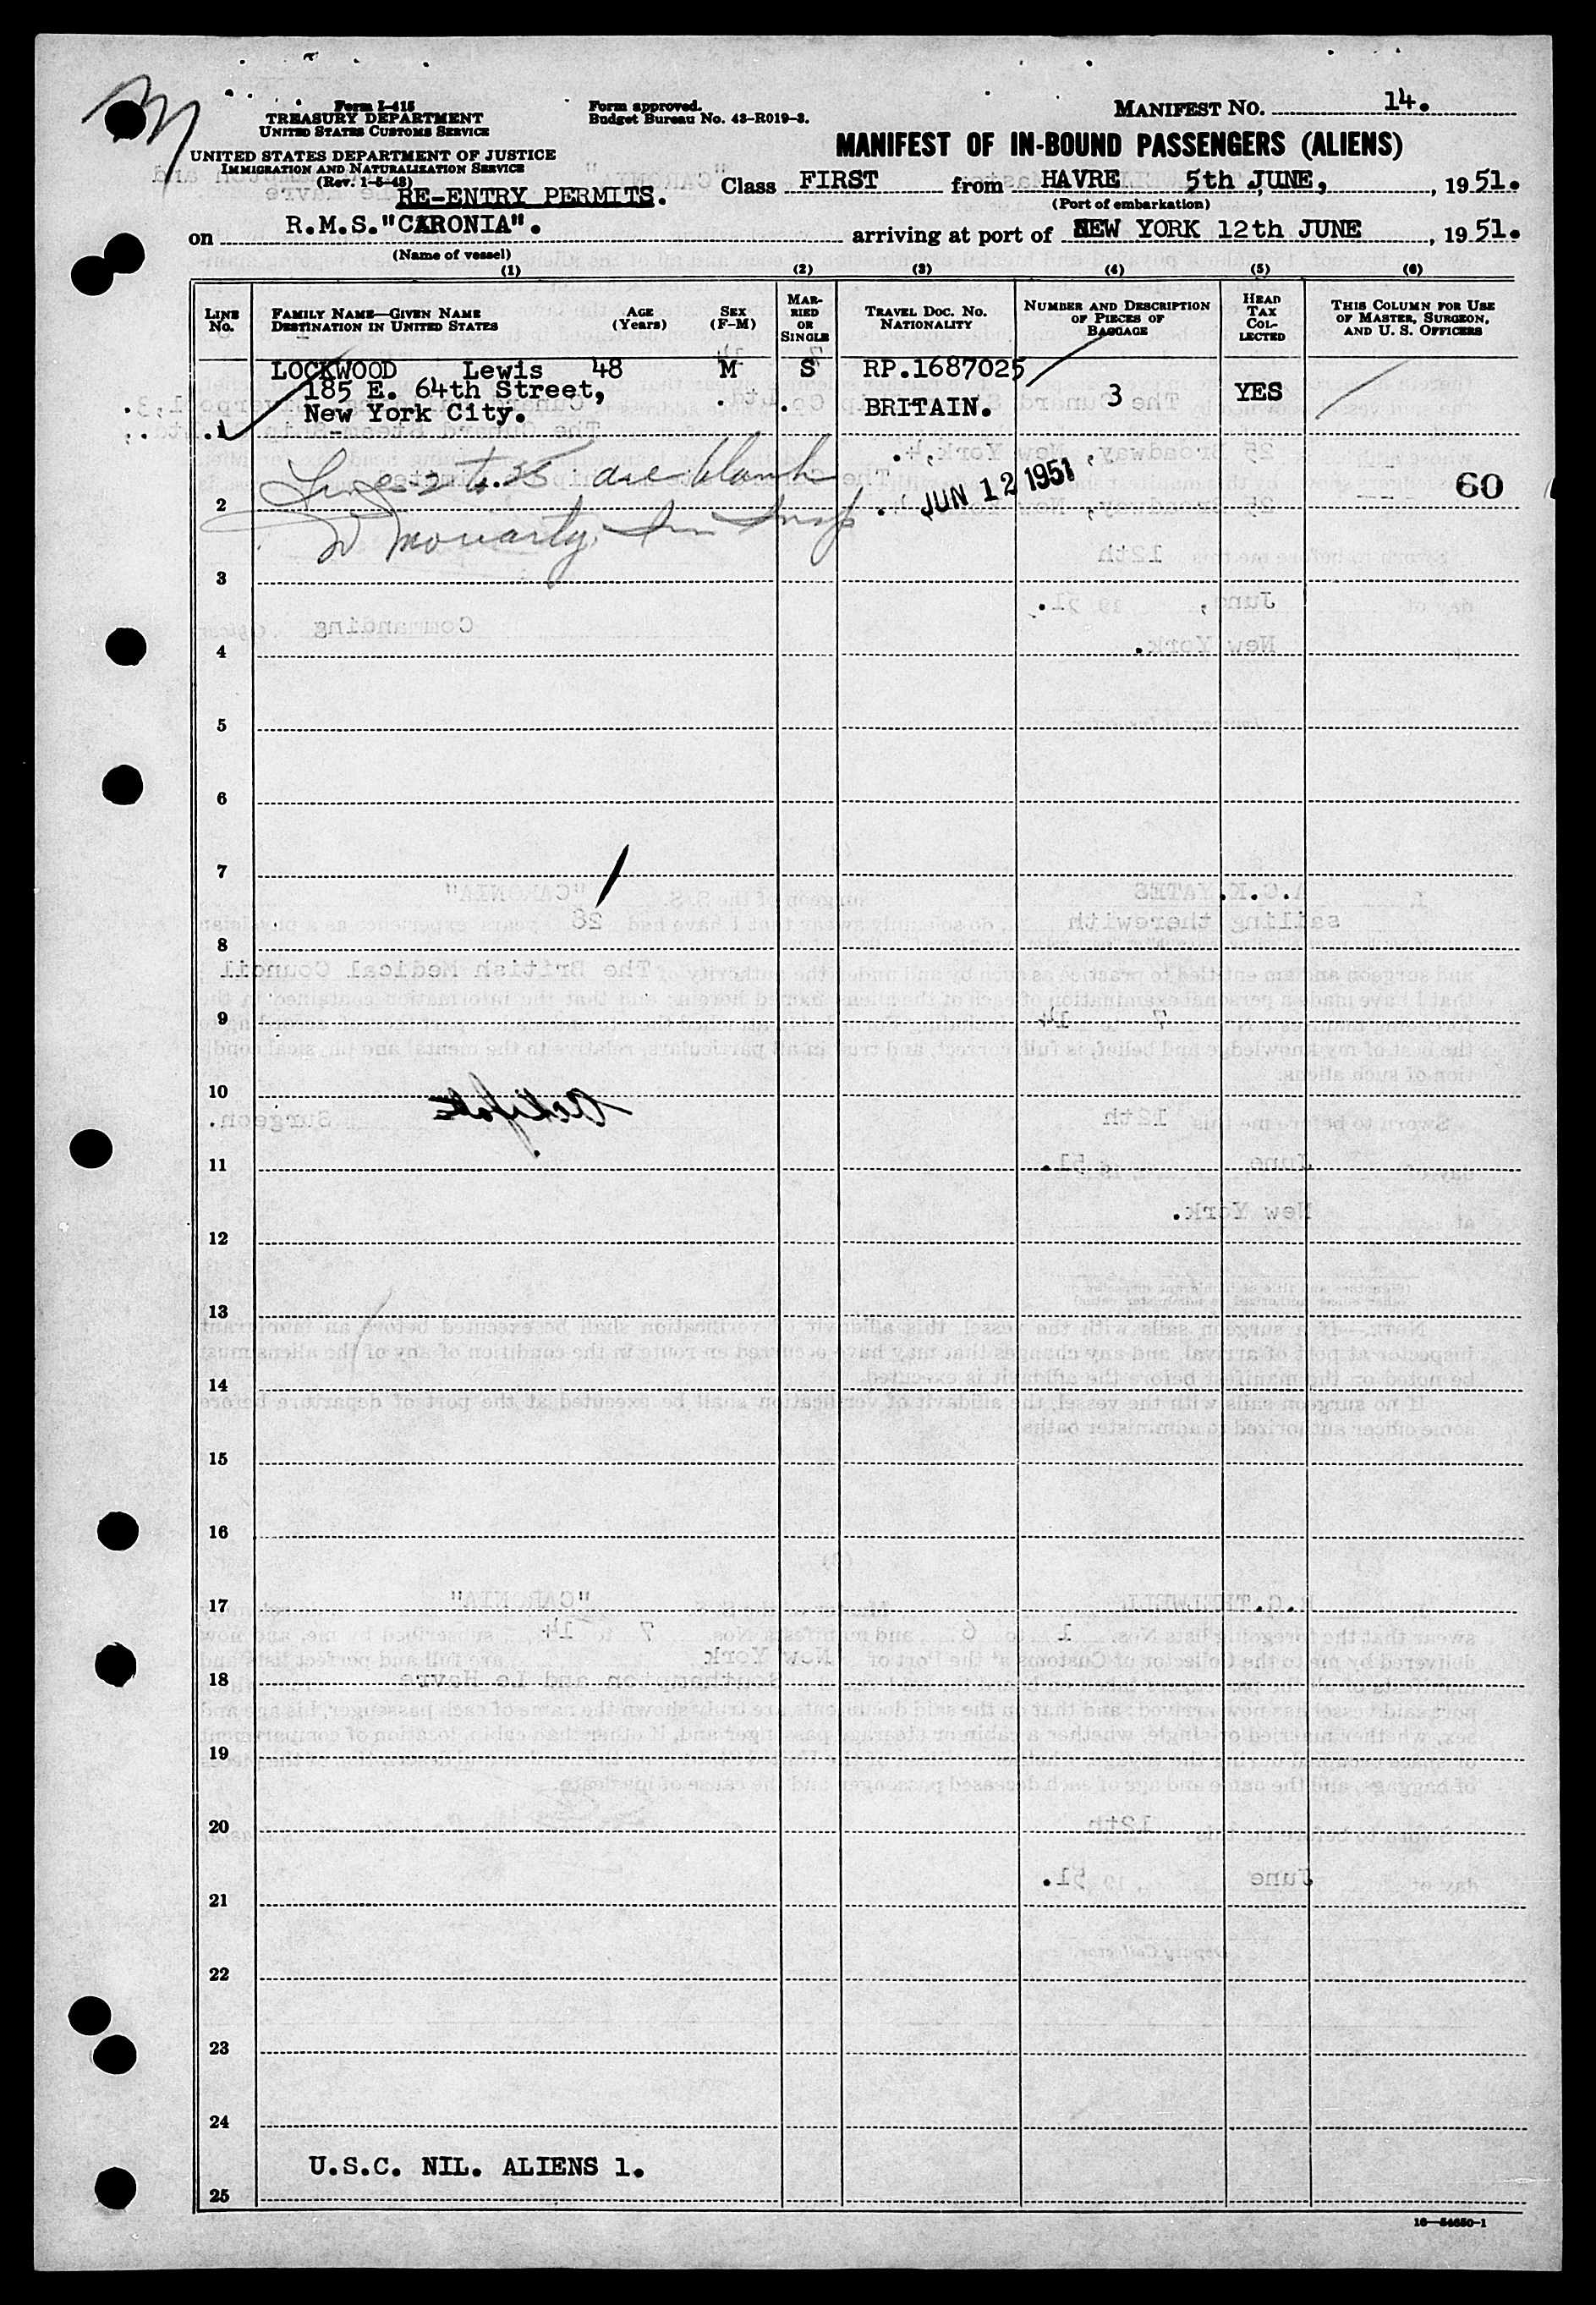 Form I-415
TREASURY DEPARTMENT
UNITED STATES CUSTOMS SERVICE
UNITED STATES DEPARTMENT OF JUSTICE
IMMIGRATION AND NATURALIZATION SERVICE
(Rev. 1-5-48)
Form approved.
Budget Bureau No. 43-R019-3.
MANIFEST NO. 14.
MANIFEST OF IN-BOUND PASSENGERS (ALIENS)
RE-ENTRY PERMITS.
Class FIRST from HAVRE 5th JUNE, , 1951.
(Port of embarkation)
on R.M.S."CARONIA". arriving at port of NEW YORK 12th JUNE , 1951.
(Name of vessel)
(1) (2) (3) (4) (5) (6)
LINE NO.
FAMILY NAME—GIVEN NAME DESTINATION IN UNITED STATES
AGE (Years)
SEX (F-M)
MARRIED OR SINGLE
TRAVEL DOC. NO. NATIONALITY
NUMBER AND DESCRIPTION OF PIECES OF BAGGAGE
HEAD TAX COLLECTED
THIS COLUMN FOR USE OF MASTER, SURGEON, AND U. S. OFFICERS
LOCKWOOD Lewis 48 M S RP.1687025
185 E. 64th Street, 3 YES
New York City. BRITAIN.
1
Lines 2 to 25 are blank
JUN 12 1951
60
2
W Moriarty, Im Insp
3
4
5
6
7
8
9
10
11
12
13
14
15
16
17
18
19
20
21
22
23
24
U.S.C. NIL. ALIENS 1.
25
16—54650-1